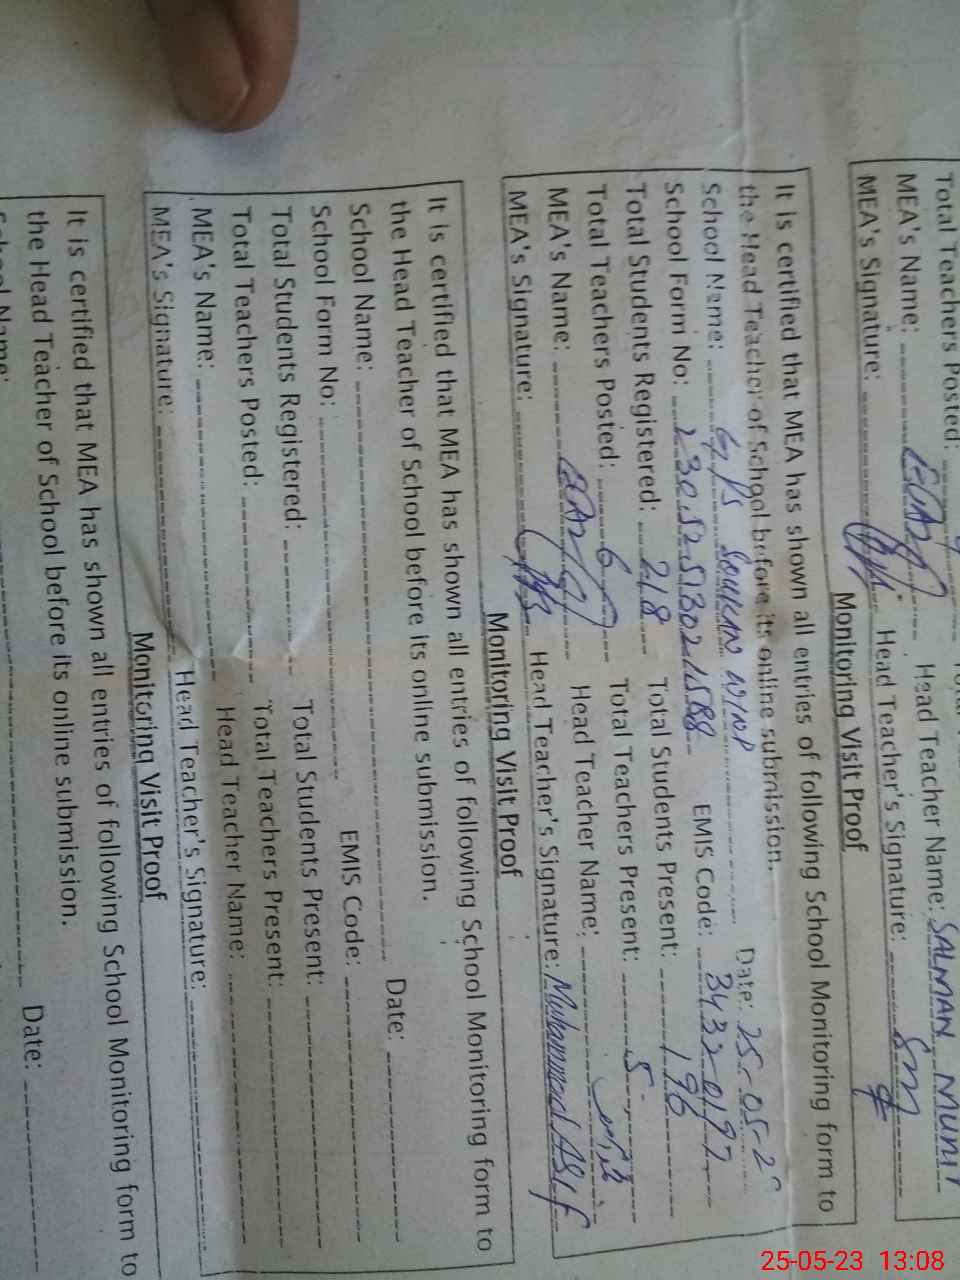 Total Teachers Posted:
MEA's Name: Head Teacher Name: SALMAN MUNIR
MEA's Signature: Head Teacher's Signature:
Monitoring Visit Proof
It is certified that MEA has shown all entries of following School Monitoring form to
the Head Teacher of School before its online submission.
School Name: Date: 25-05-2
School Form No: EMIS Code:
Total Students Registered: 218 Total Students Present: 196
Total Teachers Posted: 6 Total Teachers Present: 5
MEA's Name: Head Teacher Name:
MEA's Signature: Head Teacher's Signature: Muhammad ASif
Monitoring Visit Proof
It is certified that MEA has shown all entries of following School Monitoring form to
the Head Teacher of School before its online submission.
School Name: Date:
School Form No: EMIS Code:
Total Students Registered: Total Students Present:
Total Teachers Posted: Total Teachers Present:
MEA's Name: Head Teacher Name:
MEA's Signature: Head Teacher's Signature:
Monitoring Visit Proof
It is certified that MEA has shown all entries of following School Monitoring form to
the Head Teacher of School before its online submission.
School Name: Date:
25-05-23 13:08